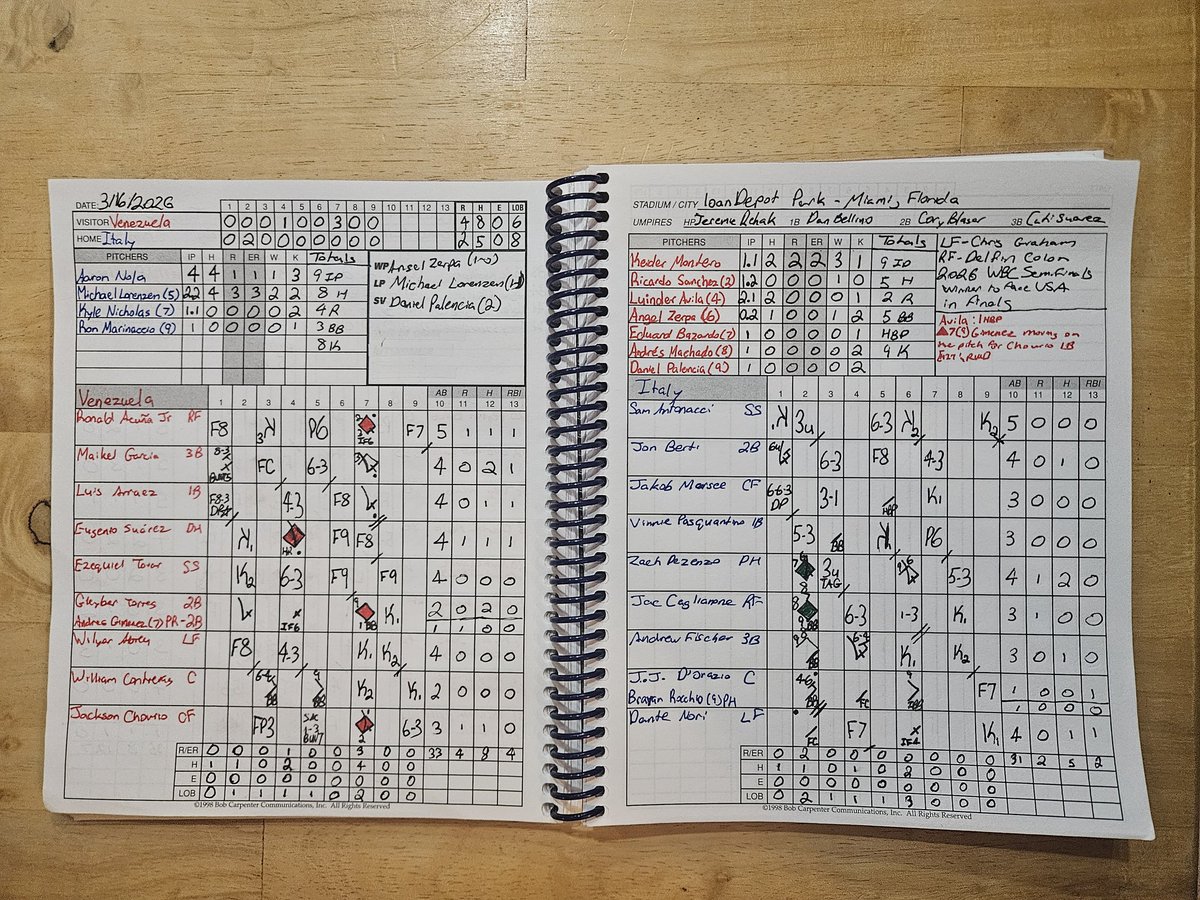 DATE: 3/16/2026
1 2 3 4 5 6 7 8 9 10 11 12 13 R H E LOB
VISITOR Venezuela 0 0 0 1 0 0 3 0 0 4 8 0 6
HOME Italy 0 2 0 0 0 0 0 0 0 2 5 0 8
PITCHERS IP H R ER W K Totals
Aaron Nola 4 4 1 1 1 3 9 IP
Michael Lorenzen (5) 2.2 4 3 3 2 2 8 H
Kyle Nicholas (7) 1.1 0 0 0 0 2 4 R
Ron Marinaccio (9) 1 0 0 0 0 1 3 BB
8 K
WP Angel Zerpa (1-0)
LP Michael Lorenzen
SV Daniel Palencia (2)
Venezuela 1 2 3 4 5 6 7 8 9 AB 10 R 11 H 12 RBI 13
Ronald Acuña Jr RF F8 P6 IF6 F7 5 1 1 1
Maikel Garcia 3B 8-3 FC 6-3 4 0 2 1
Luis Arraez 1B F8-3 4-3 F8 4 0 1 1
Eugenio Suárez DH HR F9 F8 4 1 1 1
Ezequiel Tovar SS K2 6-3 F9 F9 4 0 0 0
Gleyber Torres 2B IF6 BB K1 2 0 2 0
Andres Gimenez (7) PR-2B 1 1 0 0
Wilyer Abreu LF F8 4-3 K1 K2 4 0 0 0
William Contreras C BB BB K2 K1 2 0 0 0
Jackson Chourio CF FP3 SAC 1-3 BUNT 6-3 3 1 1 0
R/ER 0 0 0 1 0 0 3 0 0 33 4 8 4
H 1 1 0 2 0 0 4 0 0
E 0 0 0 0 0 0 0 0 0
LOB 0 1 1 1 1 0 2 0 0
©1998 Bob Carpenter Communications, Inc. All Rights Reserved
STADIUM / CITY loanDepot Park - Miami, Florida
UMPIRES HP Jeremie Rehak 1B Dan Bellino 2B Cory Blaser 3B Suarez
PITCHERS IP H R ER W K Totals
Keider Montero 1.1 2 2 2 3 1 9 IP
Ricardo Sanchez (2) 1.2 0 0 0 1 0 5 H
Luinder Avila (4) 2.1 2 0 0 0 1 2 R
Angel Zerpa (6) 0.2 1 0 0 1 2 5 BB
Eduard Bazardo (7) 1 0 0 0 0 1 HBP
Andrés Machado (8) 1 0 0 0 0 2 9 K
Daniel Palencia (9) 1 0 0 0 0 2
LF-Chris Graham
RF-Delfin Colon
2026 WBC Semifinals
Winner to Face USA
in Finals
Avila: 1 HBP
7(9) Gimenez moving on
the pitch for Chourio 1B
Italy 1 2 3 4 5 6 7 8 9 AB 10 R 11 H 12 RBI 13
Sam Antonacci SS 3u 6-3 K2 5 0 0 0
Jon Berti 2B 6-3 F8 4-3 4 0 1 0
Jakob Marsee CF 6-6-3 DP 3-1 HBP K1 3 0 0 0
Vinnie Pasquantino 1B 5-3 BB P6 3 0 0 0
Zach Dezenzo PH 3u TAG 5-3 4 1 2 0
Jac Caglianone RF BB 6-3 1-3 K1 3 1 0 0
Andrew Fischer 3B BB K1 K2 3 0 1 0
J.J. D'Orazio C BB FC BB F7 1 0 0 1
Brayan Rocchio (9) PH 1 0 0 0
Dante Nori LF FC F7 IF4 K1 4 0 1 1
R/ER 0 2 0 0 0 0 0 0 0 31 2 5 2
H 1 1 0 1 0 2 0 0 0
E 0 0 0 0 0 0 0 0 0
LOB 0 2 1 1 1 3 0 0 0
©1998 Bob Carpenter Communications, Inc. All Rights Reserved